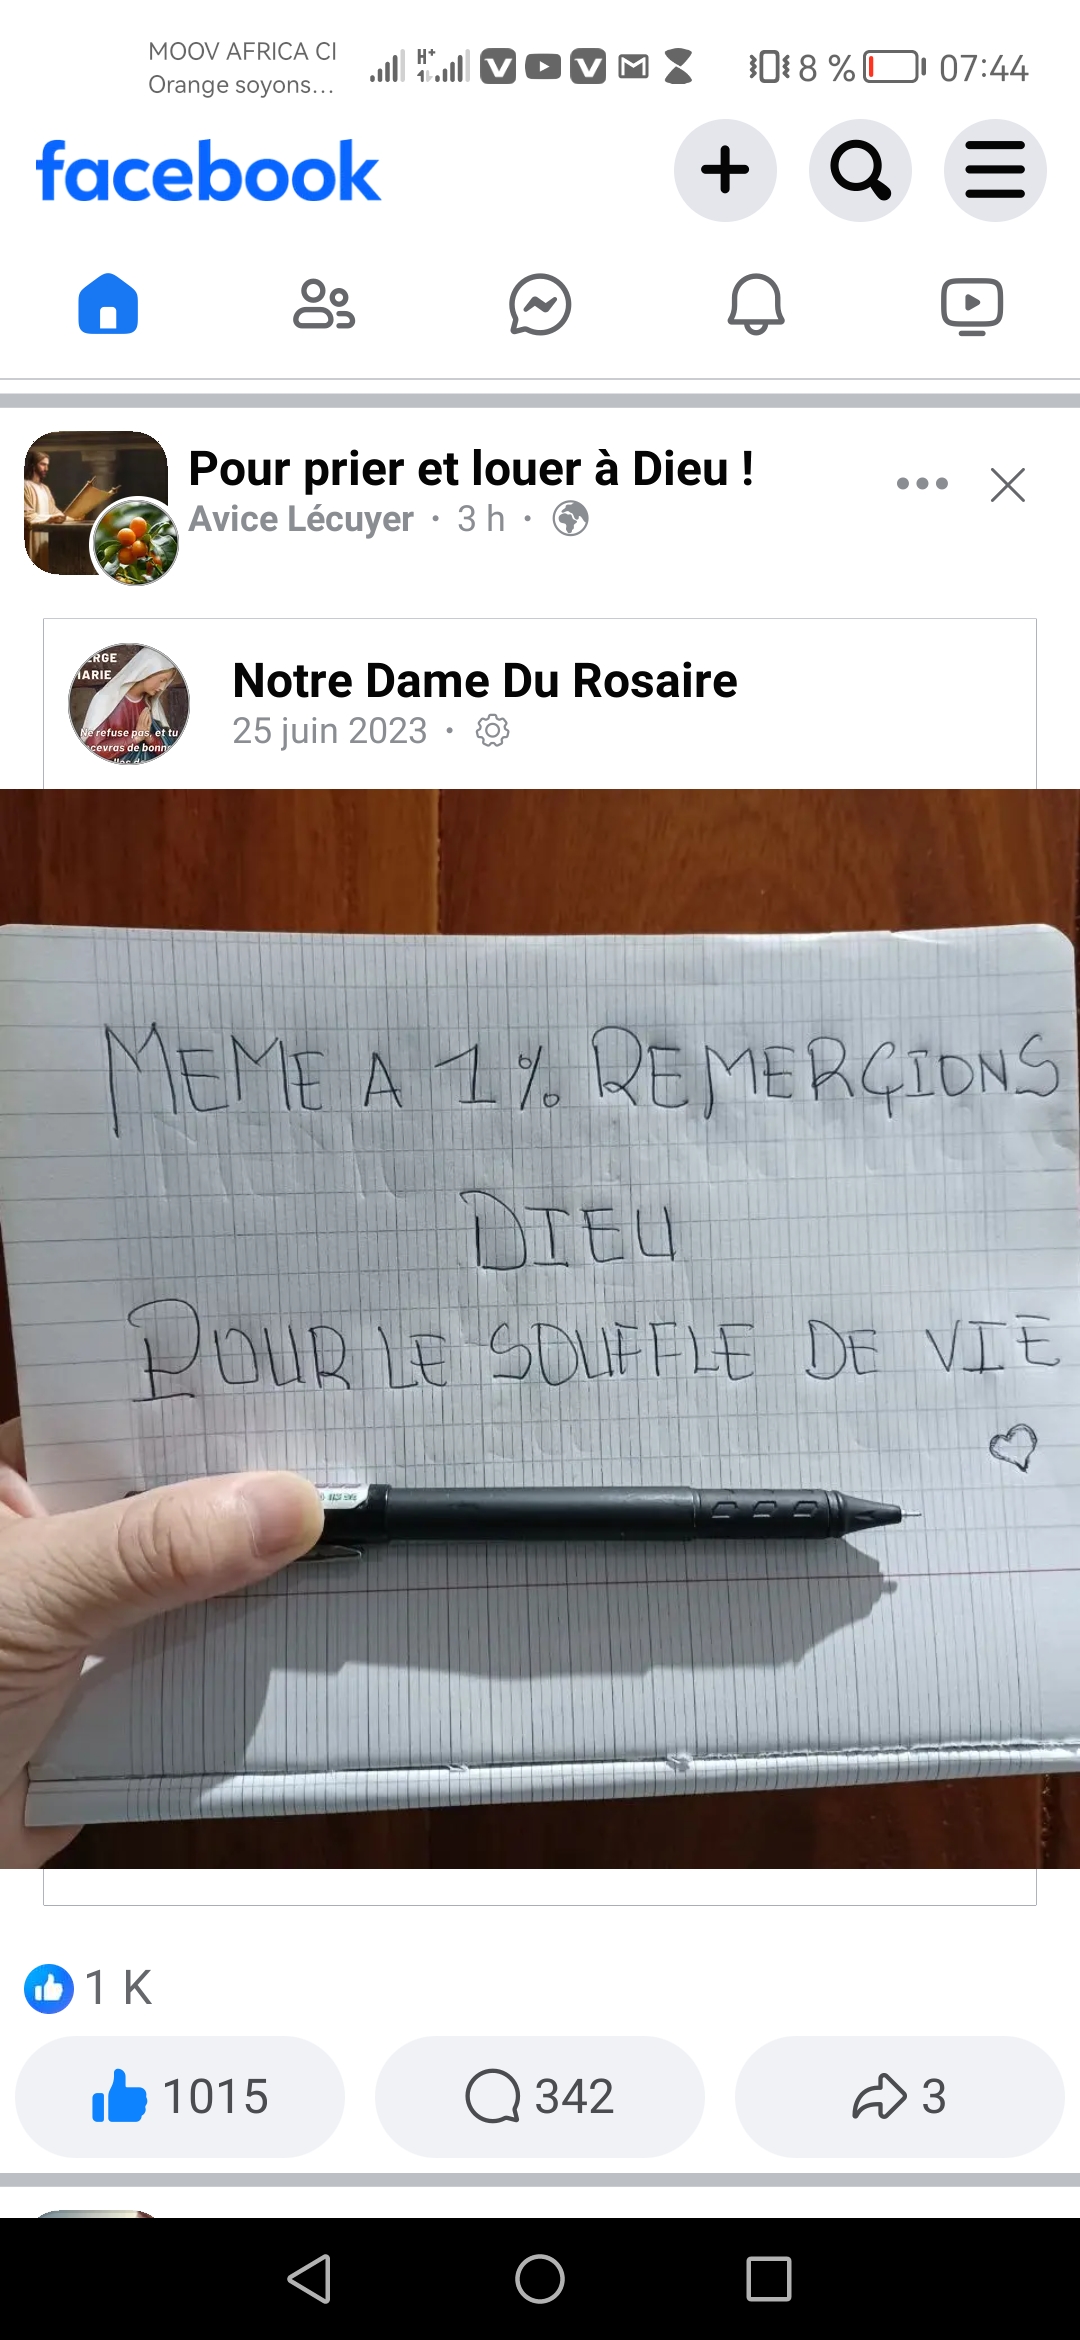 MOOV AFRICA CI
Orange soyons...
H+
8 %
07:44
facebook
Pour prier et louer à Dieu !
Avice Lécuyer · 3 h ·
ERGE
MARIE
Ne refuse pas, et tu
cevras de bonn
Notre Dame Du Rosaire
25 juin 2023 ·
MEME A 1% REMERÇIONS
DIEU
POUR LE SOUFFLE DE VIE
1 K
1015
342
3